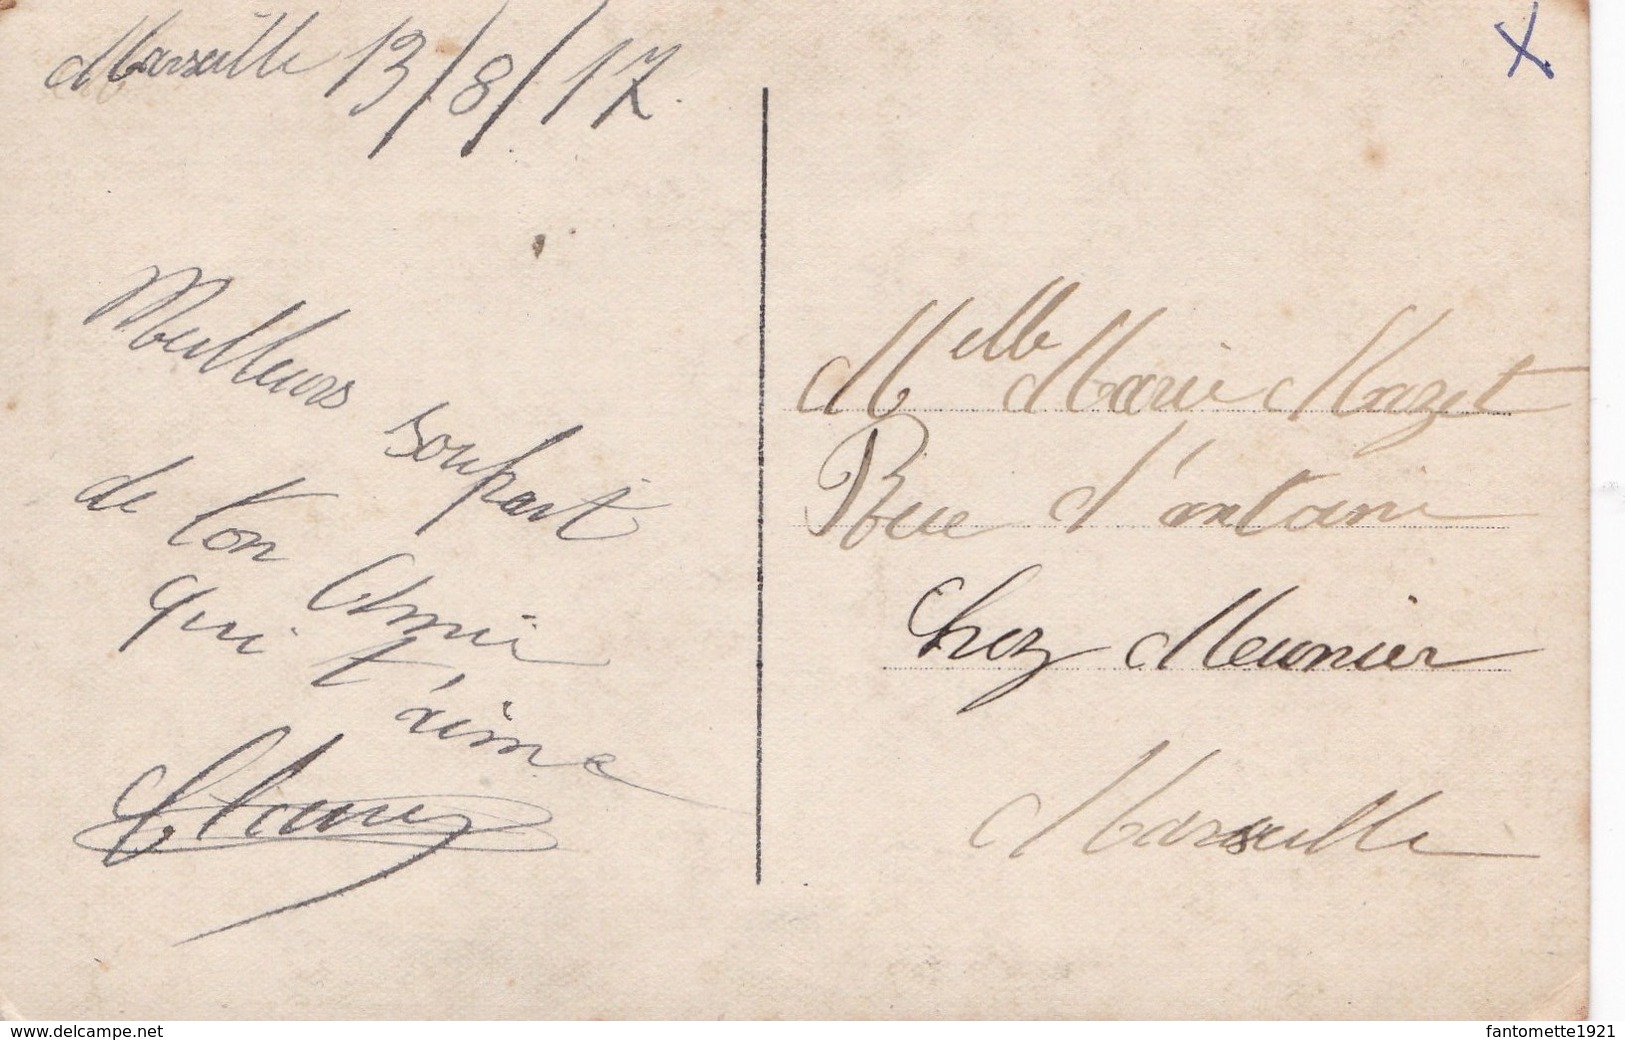 Marseille 13/8/17.
Meilleurs soupart
de ton Ami
qui t'aime
X
Melle Marie Mazet
Rue d'antoine
Chez Meunier
Marseille
www.delcampe.net
fantomette1921